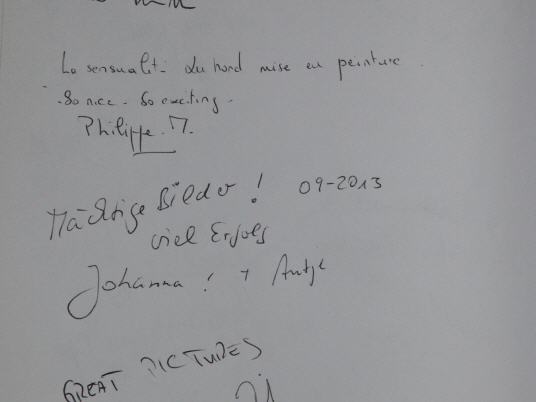 La sensualité du nord mise en peinture.
So nice. So exciting.
Philippe. M.
Mächtige Bilder! 09-2013
viel Erfolg
Johanna! + Antje
GREAT PICTURES